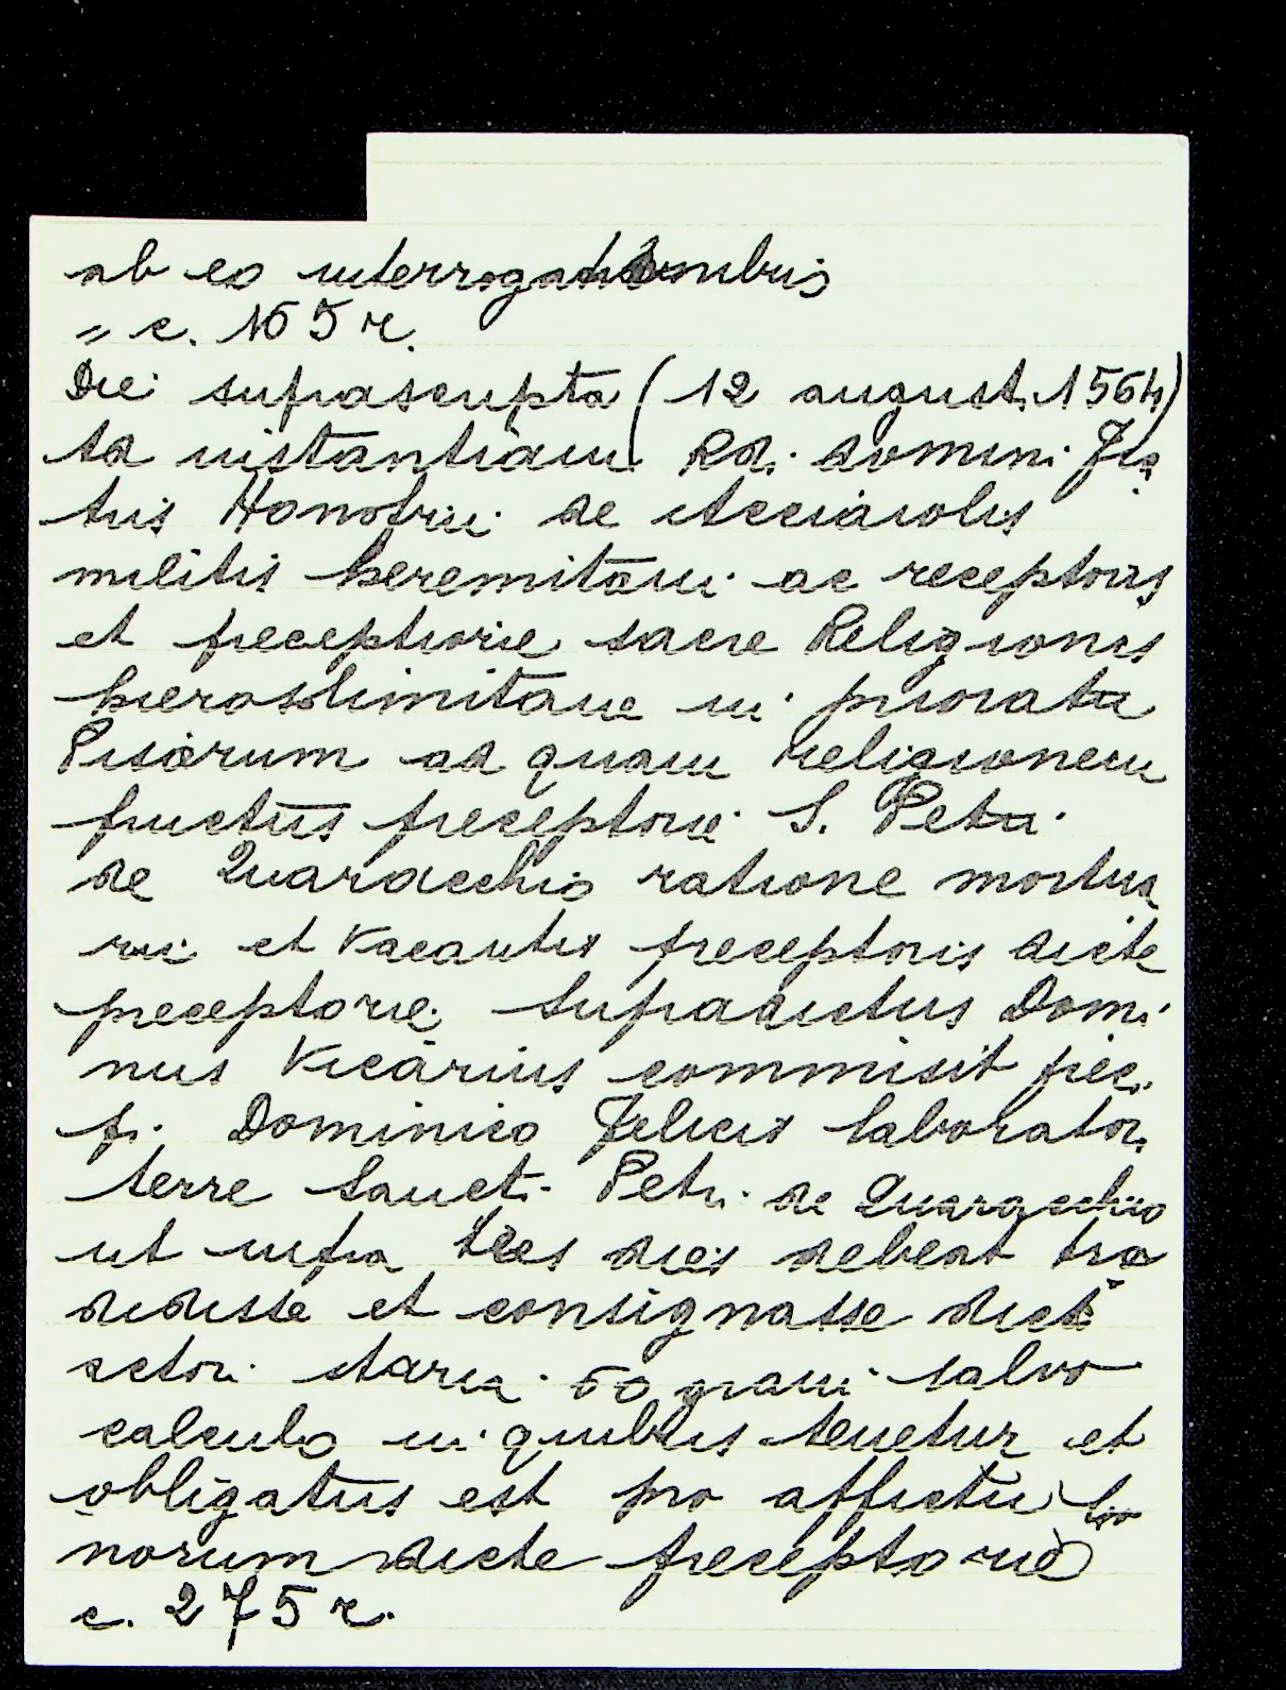 ab eo interrogationibus
" c. 165 r.
Die suprascripta (12 august. 1564)
Ad instantiam Rdi. domini Fra
tris Honofrii de Acciaiolis
militis heremitani ac receptoris
et preceptorie sacre Religionis
hierosolimitane in prioratu
Pisarum ad quam religionem
fructus preceptorie S. Petri
de Quaracchio ratione mortua
rii et vacantis preceptoris dicte
preceptorie supradictus Domi
nus Vicarius commisit prec.
p. Dominico Felicis laborator.
terre Sancti Petri de Quaracchio
ut infra tres dies debeat tra
didisse et consignasse dicto
actori staria 60 grani salvo
calculo in quibus tenetur et
obligatus est pro affictu bo
norum dicte preceptorie
c. 275 r.